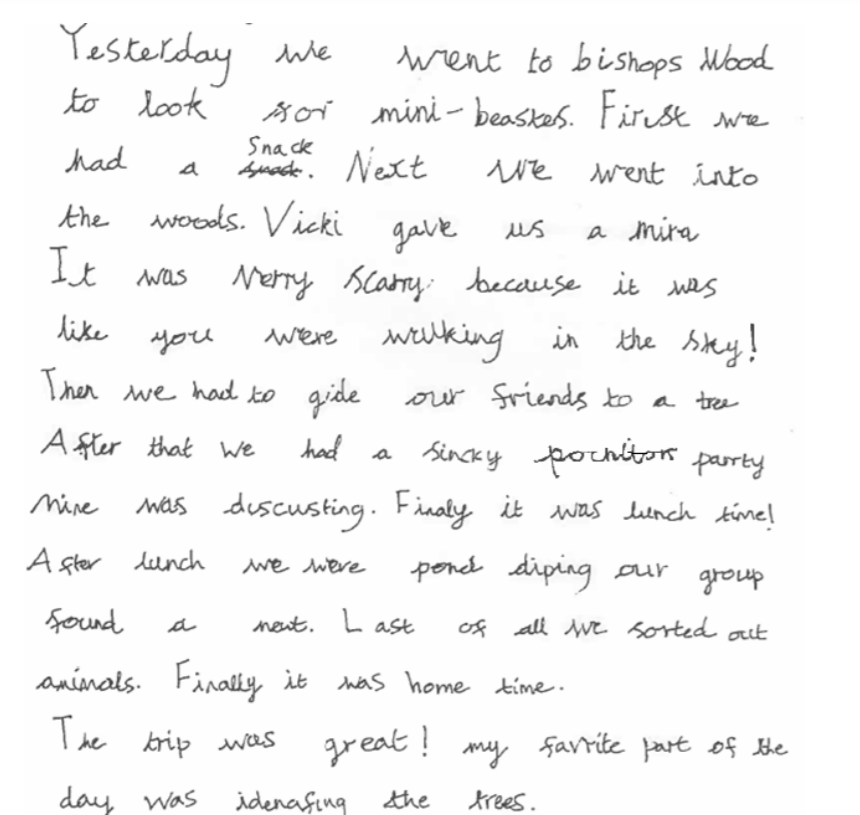 Yesterday we went to bishops Wood
to look for mini-beastes. First we
had a snack. Next we went into
the woods. Vicki gave us a mira
It was Verry scarry. because it was
like you were walking in the sky!
Then we had to gide our friends to a tree
After that we had a sincky parrty
Mine was discusting. Finaly it was lunch time!
After lunch we were pond diping our group
found a neut. Last of all we sorted out
animals. Finally it was home time.
The trip was great! my favrite part of the
day was idenafing the trees.